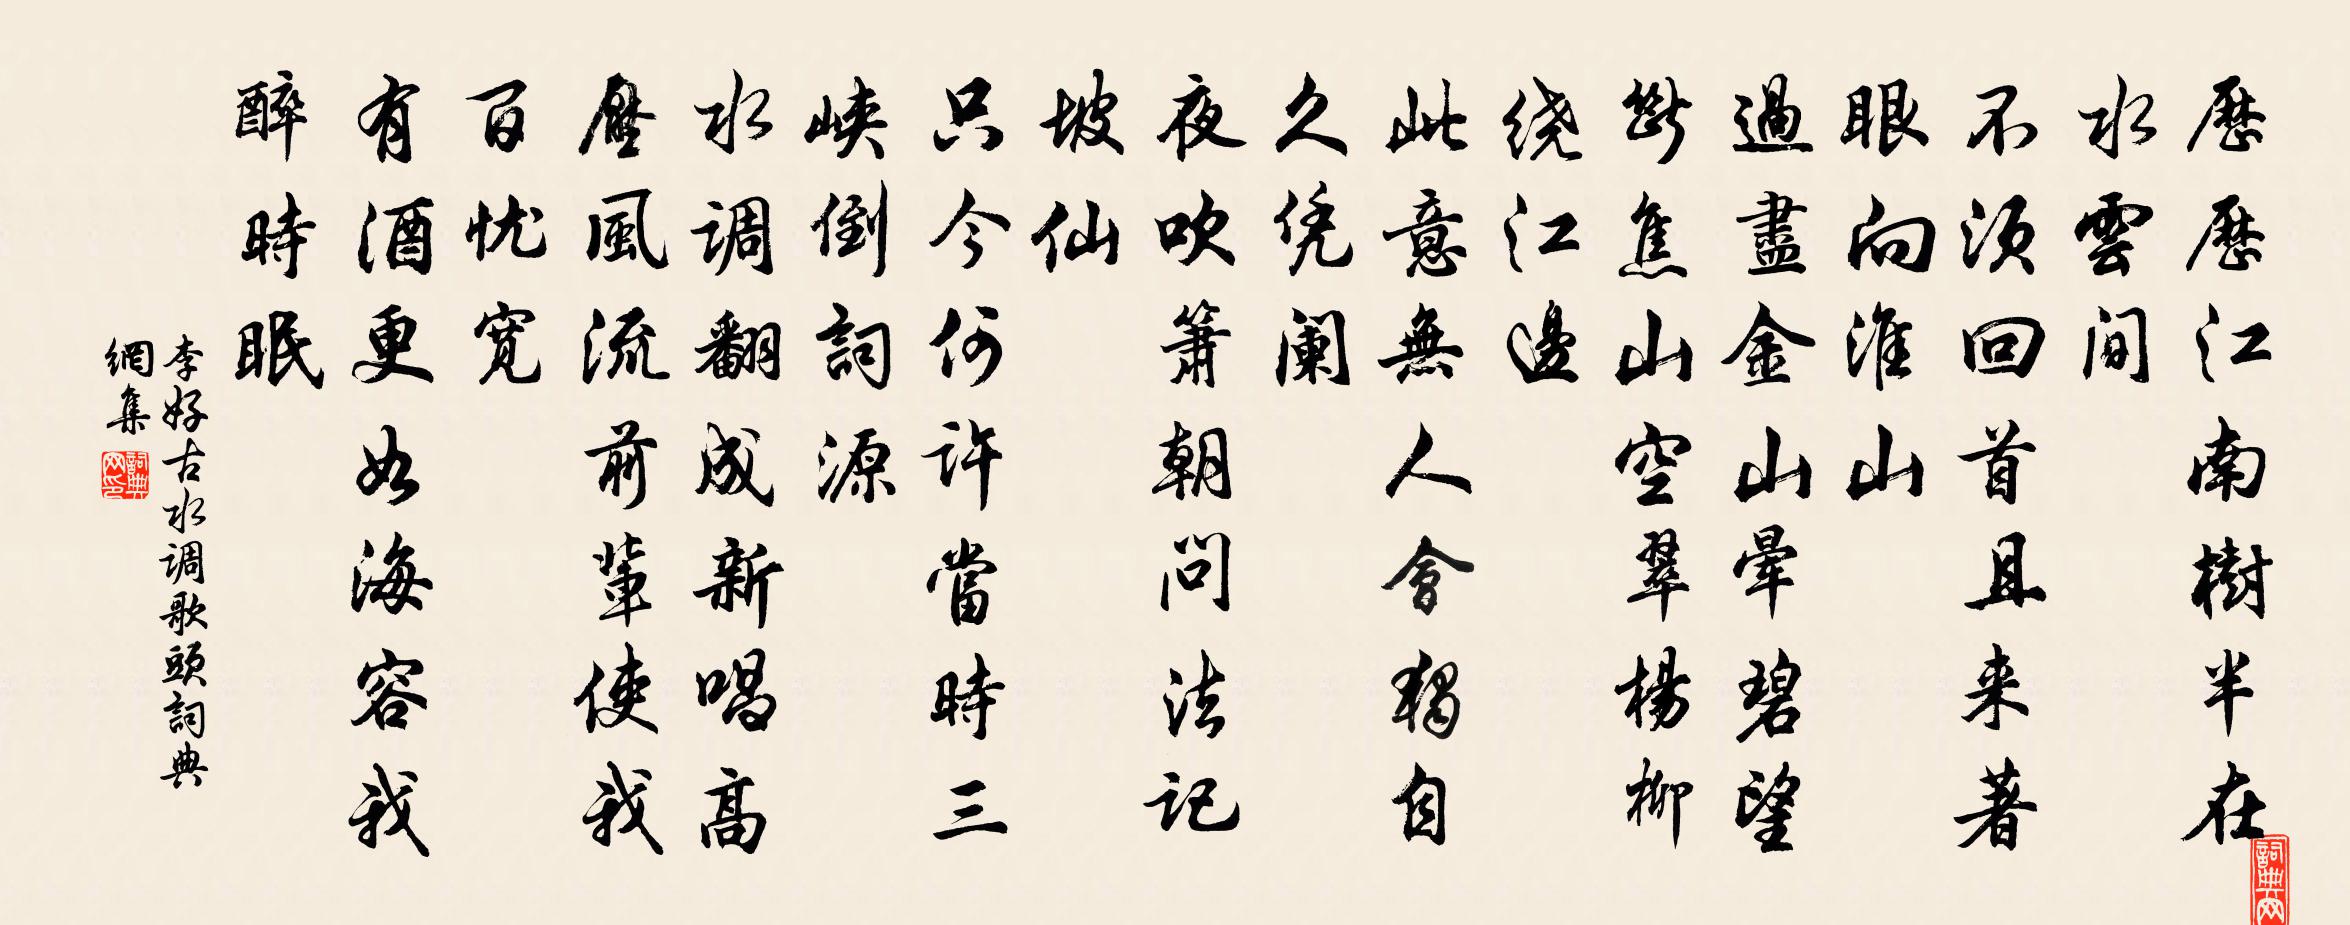 歷歷江南樹半在
水雲间
不须回首且来著
眼向淮山
過盡金山暈碧望
斷焦山空翠楊柳
绕江邊
此意無人會獨自
久凭阑
夜吹箫朝问法记
坡仙
只今何许當時三
峡倒詞源
水调翻成新唱高
壓風流前輩使我
百忧宽
有酒更如海容我
醉時眠
李好古水调歌頭詞典
網集
詞典网
詞典网印